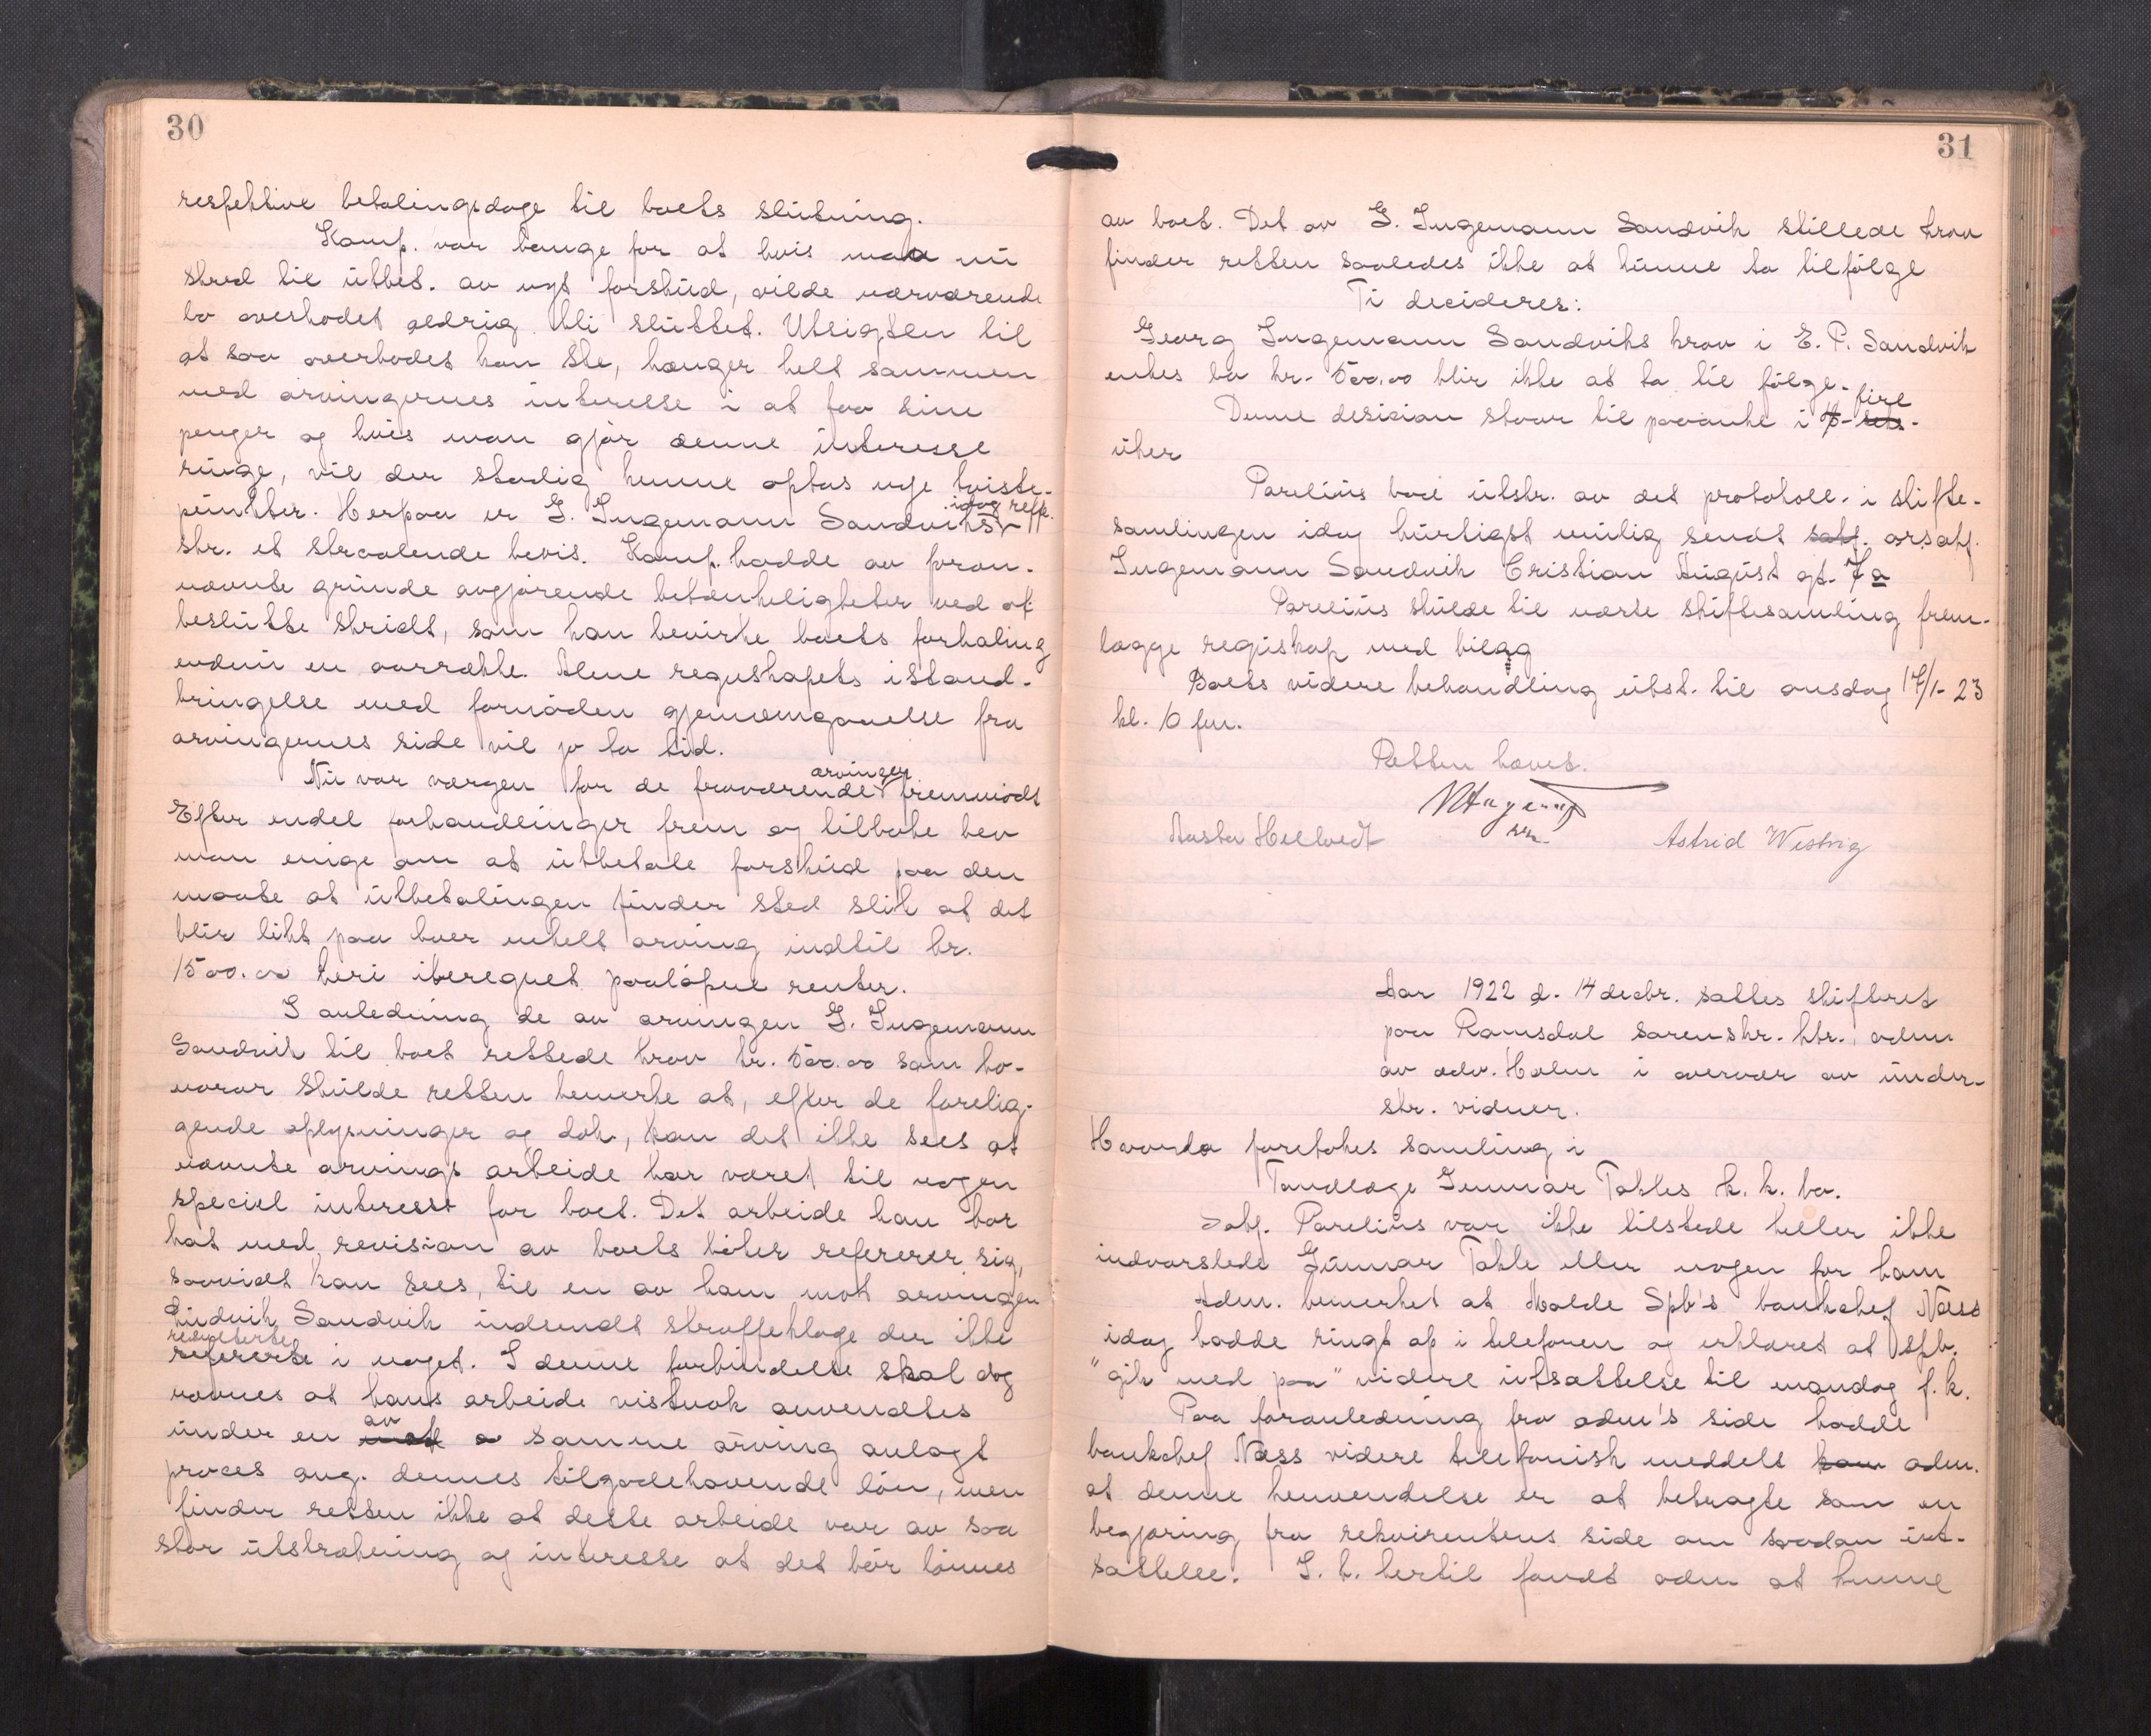 30
respektive betalingsdage til boets slutning.
Komp. var bange for at hvis man nu
skred til utbet. av nyt forskud, vilde nærværende
bo overhodet aldrig bli sluttet. Utsigten til
at saa overhodet kan ske, hænger helt sammen
med arvingernes interesse i at faa sine
penger og hvis man gjør denne interesse
ringe, vil der stadig kunne optas nye tviste-
punkter. Herpaa er G. Ingemann Sandviks idag
skr. et straalende bevis. Komp. hadde av foran-
nævnte grunde avgjørende betænkeligheter ved at
beslutte skridt, som kan bevirke boets forhaling
endnu en aarrække. Alene regnskapets istand-
bringelse med fornøden gjennemgaaelse fra
arvingernes side vil jo ta tid.
Nu var værgen for de fraværende arvinger fremmødt
Efter endel forhandlinger frem og tilbake blev
man enige om at utbetale forskud paa den
maate at utbetalingen finder sted slik at det
blir likt paa hver enkelt arving indtil kr.
1500.00 heri iberegnet paaløpne renter.
I anledning de av arvingen G. Ingemann
Sandvik til boet rettede krav kr. 500.00 som ho-
norar skulde retten bemerke at, efter de forelig-
gende oplysninger og dok., kan det ikke sees at
nævnte arvings arbeide har været til nogen
speciel interesse for boet. Det arbeide han har
hat med revision av boets bøker refererer sig,
saavidt kan sees, til en av ham mot arvingen
Ludvik Sandvik indsendt straffeklage der ikke
resulterte
refererte i noget. I denne forbindelse skal dog
nævnes at hans arbeide vistnok anvendtes
under en av samme arving anlagt
proces ang. dennes tilgodehavende løn, men
finder retten ikke at dette arbeide var av saa
stor utstrækning og interesse at det bør lønnes
31
av boet. Det av G. Ingemann Sandvik stillede krav
finder retten saaledes ikke at kunne ta tilfølge
Ti decideres:
Georg Ingemann Sandviks krav i E. P. Sandvik
enkes bo kr. 500.00 blir ikke at ta til følge.
Denne desision staar til paaanke i fire
uker
Parelius bad utskr. av det protokoll. i skifte-
samlingen idag hurtigst mulig sendt sakf. orsakf.
Ingemann Sandvik Cristian August gt. 7a
Parelius skulde til næste skiftesamling frem-
lægge regnskap med bilag
Boets videre behandling utst. til onsdag 17/1-23
kl. 10 fm.
Retten hævet.
Aasta Hellvedt
Astrid Westvig
Aar 1922 d. 14 decbr. sattes skifteret
paa Romsdal sorenskr. ktr., adm.
av adv. Holm i overvær av under-
skr. vidner.
Hvorda foretokes samling i
Tandlæge Gunnar Takles k. k. bo.
Sakf. Parelius var ikke tilstede heller ikke
indvarslede Gunnar Takle eller nogen for ham
Adm. bemerket at Molde Spb's bankchef Næss
idag hadde ringt op i telefonen og erklæret at spb.
"gik med paa" videre utsættelse til mandag f. k.
Paa foranledning fra adm's side hadde
bankchef Næss videre telefonisk meddelt ham adm.
at denne henvendelse er at betragte som en
begjæring fra rekvirentens side om saadan ut-
sættelse. I. h. hertil fandt adm at kunne